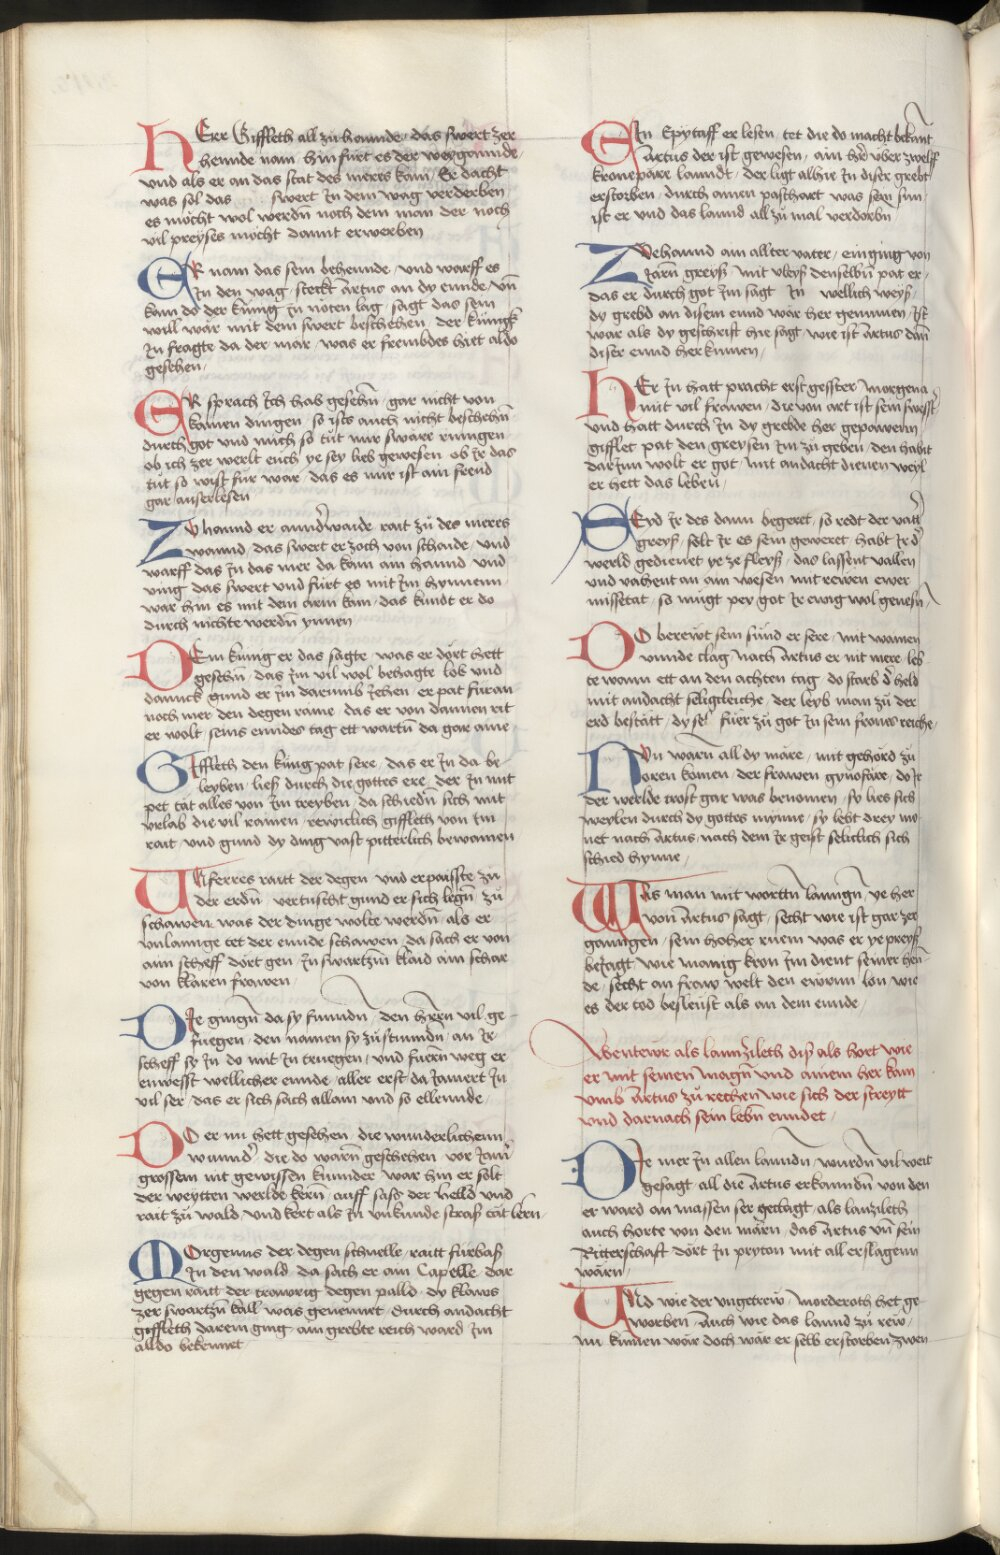 HErr Giffleth all zů hannde das swert zer
hennde nam hin fürt es der weygannde
und als er an das stat des meres kam Er dacht
was sol das swert Jn dem wag verderben
es möcht wol werdn̄ noch dem man der noch
vil preyses möcht damit erwerben
ER nam das sein beheunde und warff es
Jn den wag steckt Artus an dy ennde vn̄
kam do der künig Jn nöten lag sagt das sein
will wär mit dem swert beschehen der künigk
Jn fragte da der mär was er frembdes hiet aldo
gesehen
ER sprach Jch hab gesehn̄ gar nicht von
kainen dingen so ists auch nicht beschehn̄
durch got und mich so tůt mir swäre ringen
ob ich zer werlt euch ye sey lieb gewesen ob Jr das
tůt so wist für war das es mir ist ain freud
gar auserlesen
ZU hannd er annd'waide rait zů des meres
wannd das swert er zoch von schaide und
warff das Jn das mer da kam ain hannd und
ving das swert und fürt es mit Jm hynnenn
war hin es mit dem arm kam das kundt er do
durch nichte werdn̄ ynnen
DEm künig er das sagte was er dört hett
gesehn̄ das Jm vil wol behagte lob und
danck gund er Jm darumb Jehen er pat füran
noch mer den degen raine das er von dannen rit
er wolt seins enndes tag ett wartn̄ da gar aine
GIffleth den küng pat sere das er Jn da be
leyben ließ durch die gottes ere der Jn mit
pet tät alles von Jm treyben da schiedn̄ sich mit
vrlab die vil rainen rewiclich giffleth von Jm
rait und gund dy ding vast pitterlich bewainen
UNferres raitt der degen und erpaisste zů
der erdn̄ vertuscht gund er sich legn̄ zů
schawen was der dinge wolte werdn̄ als er
vnlannge tet der ennde schawen da sach er von
ann scheff dört gen Jn swartzm̄ klaid ain schar
von klaren frawen
DIe gingn̄ da sy funndn̄ den herrn̄ vil ge
fuegen den namen sy zů stunndn̄ an Jr
scheff sy Jn do mit Jn truegen und fuern̄ weg er
enwesst wellicher ennde aller erst da Jamert Jn
vil ser das er sich sach allain und so ellennde
DO er nu hett gesehen die wunderlichenn
wunnd' die do warn̄ geschehen vor Jam'
grossem nit gewissen kunnder war hin er solt
der weytten werlde kern̄ auff sass der helld und
rait zů wald und kert als Jn vnkunde strass tät lern
MOrgenns der degen schnelle raitt fürbaß
Jn den wald da sach er ain Capelle dar
gegen raitt der trawrig degen palld dy klaws
zer swartzn̄ kall was genennet durch andacht
giffleth darein ging ain grebte reich ward Jm
alldo bekennet
EIn Epytaff er lesen tet die do macht bekant
Artus der ist gewesen ain h're über zwelff
krone pare lanndt der ligt alhie Jn diser grebt
erstorben durch ainen paschart was sein sun
ist er und das lannd all zů mal verdorbn̄
ZEhannd ain allter vater ein ging von
Jarn̄ greyß mit vleyß denselbn̄ pat er
das er durch got Jm sagt Jn wellich weyß
dy grebd an disem ennd wär her genumen Jst
war als dy geschrift hie sagt wie ist Artus dan̄
diser ennd her kumen
HEr Jn hatt pracht erst gesster Morgena
mit vil frawen die von art ist sein swest'
und hatt durch Jn dy grebde her gepawenn
gifflet pat den greysen Jm zů geben den habit
darJnn wolt er got mit andacht dienen weyl
er hett das leben
SEyd Jr des dann begeret so redt der vatt'
greyß solt Jr es sein geweret habt Jr d'
werld gedienet ye ze fleyß das lassent vallen
und vachent an ain wesen mit rewen ewer
missetat so mügt pey got Jr ewig wol genesn̄
DO berewt sein sünd er sere mit wainen
wunde clag nach Artus er nit mere leb
te wann ett an den achten tag do starb d' held
mit andacht seligkleiche der leyb man zů der
erd bestätt dy sel' fuer zů got Jn sein frones reiche
NUn warn̄ all dy märe mit gehörd zů
oren komen der frawen gynofäre do Jr
der werlde trost gar was benomen sy lies sich
weylen durch dy gottes mynne sy lebt drey mo
net nach Artus nach dem Jr geist seliclich sich
schied hynne
WAs man mit wortn̄ lanngn̄ ye her
von Artus sagt secht wie ist gar zer
ganngen sein hoher ruem was er ye preyß
beJagt wie manig kron Jm dient seiner hen̄
de secht an fraw welt den ewrnn lon wie
es der tod besleust als an dem ennde
Abentewr als lannzileth diss als hort wie
er mit seinen magn̄ und ainem her kam
vmb Artus zů rechen wie sich der streytt
und darnach sein lebn̄ enndet
DIe mer Jn allen lanndn̄ wurdn̄ vil weit
gesagt all die Artus erkanndn̄ von den
er ward an massen ser geclagt als lanzileth
auch horte von den märn̄ das Artus vn̄ sein
Ritterschaft dört Jn pryton mit all erslagenn
wärn
UNd wie der ungetrew morderoth het ge
worben auch wie das lannd zů rew
nu kumen wär doch wär er selb erstorben zwen